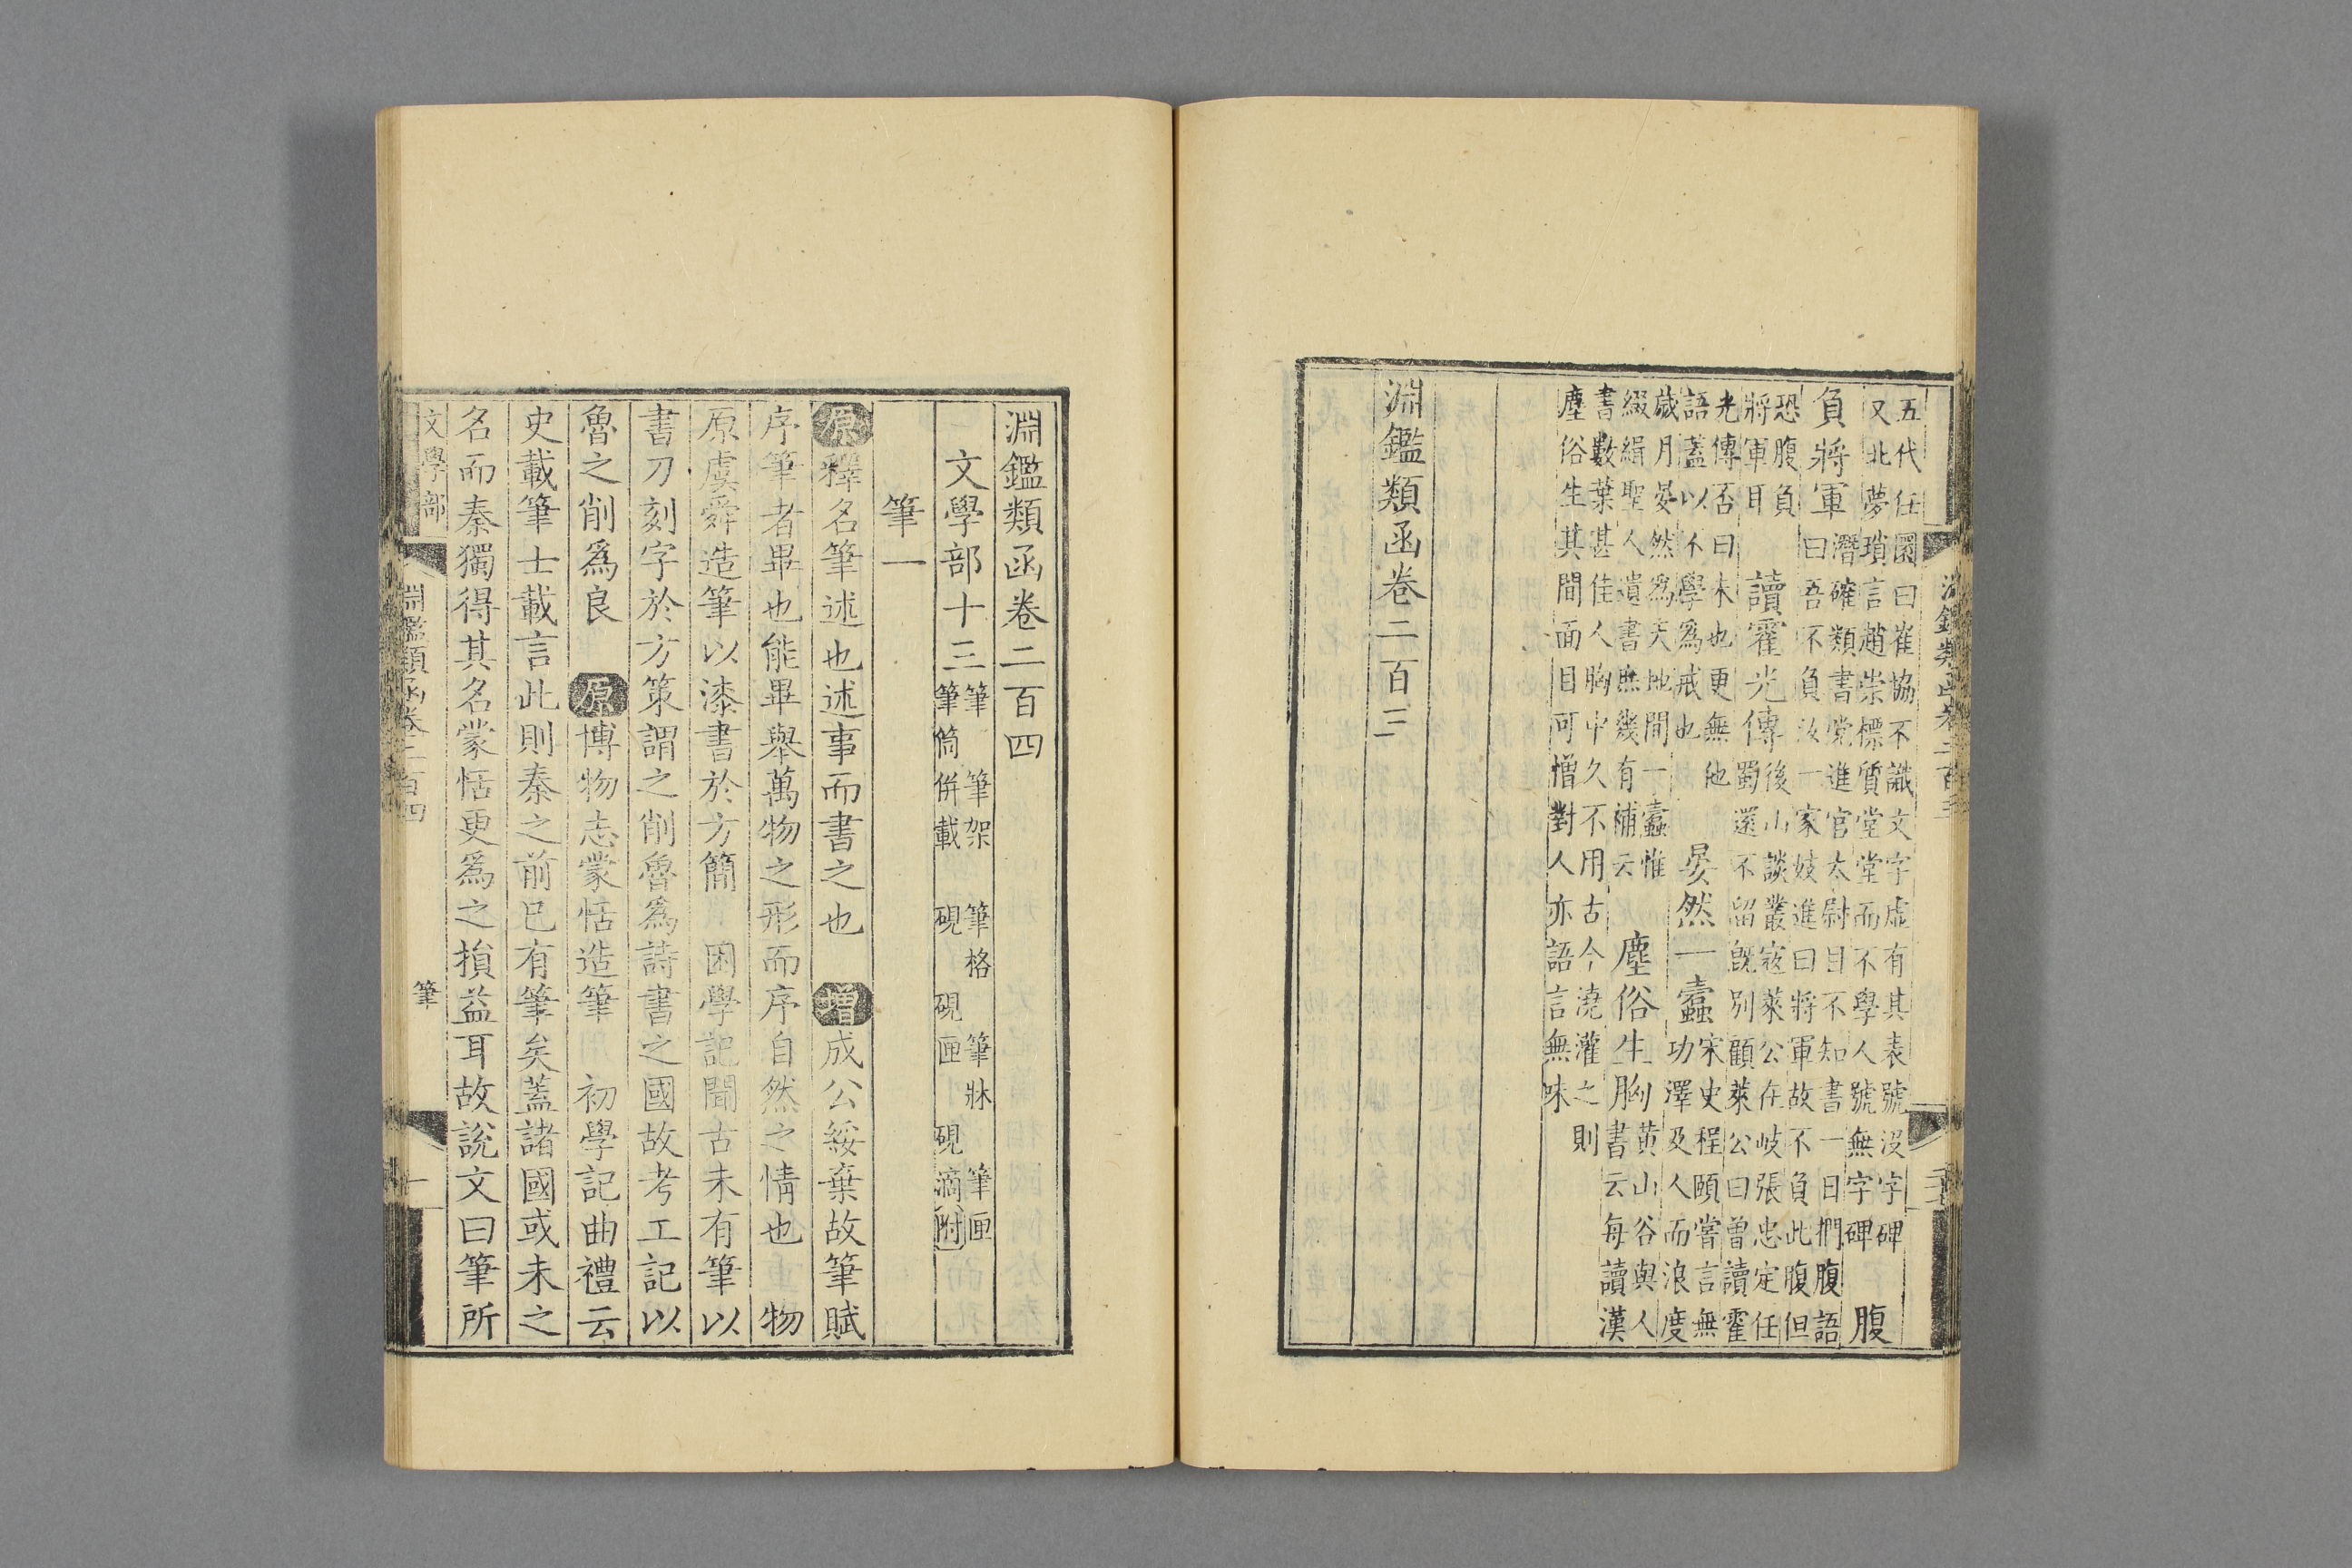 淵鑑類函卷二百三
五代任圜曰崔協不識文字虛有其表號沒字碑
又北夢瑣言趙崇標質堂堂而不學人號無字碑
腹
負將軍
潛確類書党進官太尉目不知書一日捫腹語
曰吾不負汝一家妓進曰將軍故不負此腹但
恐腹負
將軍耳
讀霍光傳
後山談叢寇萊公在岐張忠定任
蜀還不留旣別顧萊公曰曾讀霍
光傳否曰未也更無他
語蓋以不學爲戒也
晏然一蠹
宋史程頤嘗言無
功澤及人而浪度
歲月晏然爲天地間一蠹惟
綴緝聖人遺書庶幾有補云
塵俗生胸
黄山谷與人
書云每讀漢
書數葉甚佳人胸中久不用古今澆灌之則
塵俗生其間面目可憎對人亦語言無味
淵鑑類函卷二百三
淵鑑類函卷二百四
文學部十三
筆　筆架　筆格　筆牀　筆匣
筆筒併載　硯　硯匣　硯滴附
筆一
原釋名筆述也述事而書之也　增成公綏棄故筆賦
序筆者畢也能畢舉萬物之形而序自然之情也　物
原虞舜造筆以漆書於方簡　困學記聞古未有筆以
書刀刻字於方策謂之削魯爲詩書之國故考工記以
魯之削爲良　原博物志蒙恬造筆　初學記曲禮云
史載筆士載言此則秦之前已有筆矣蓋諸國或未之
名而秦獨得其名蒙恬更爲之損益耳故說文曰筆所
文學部
淵鑑類函卷二百四
筆
一